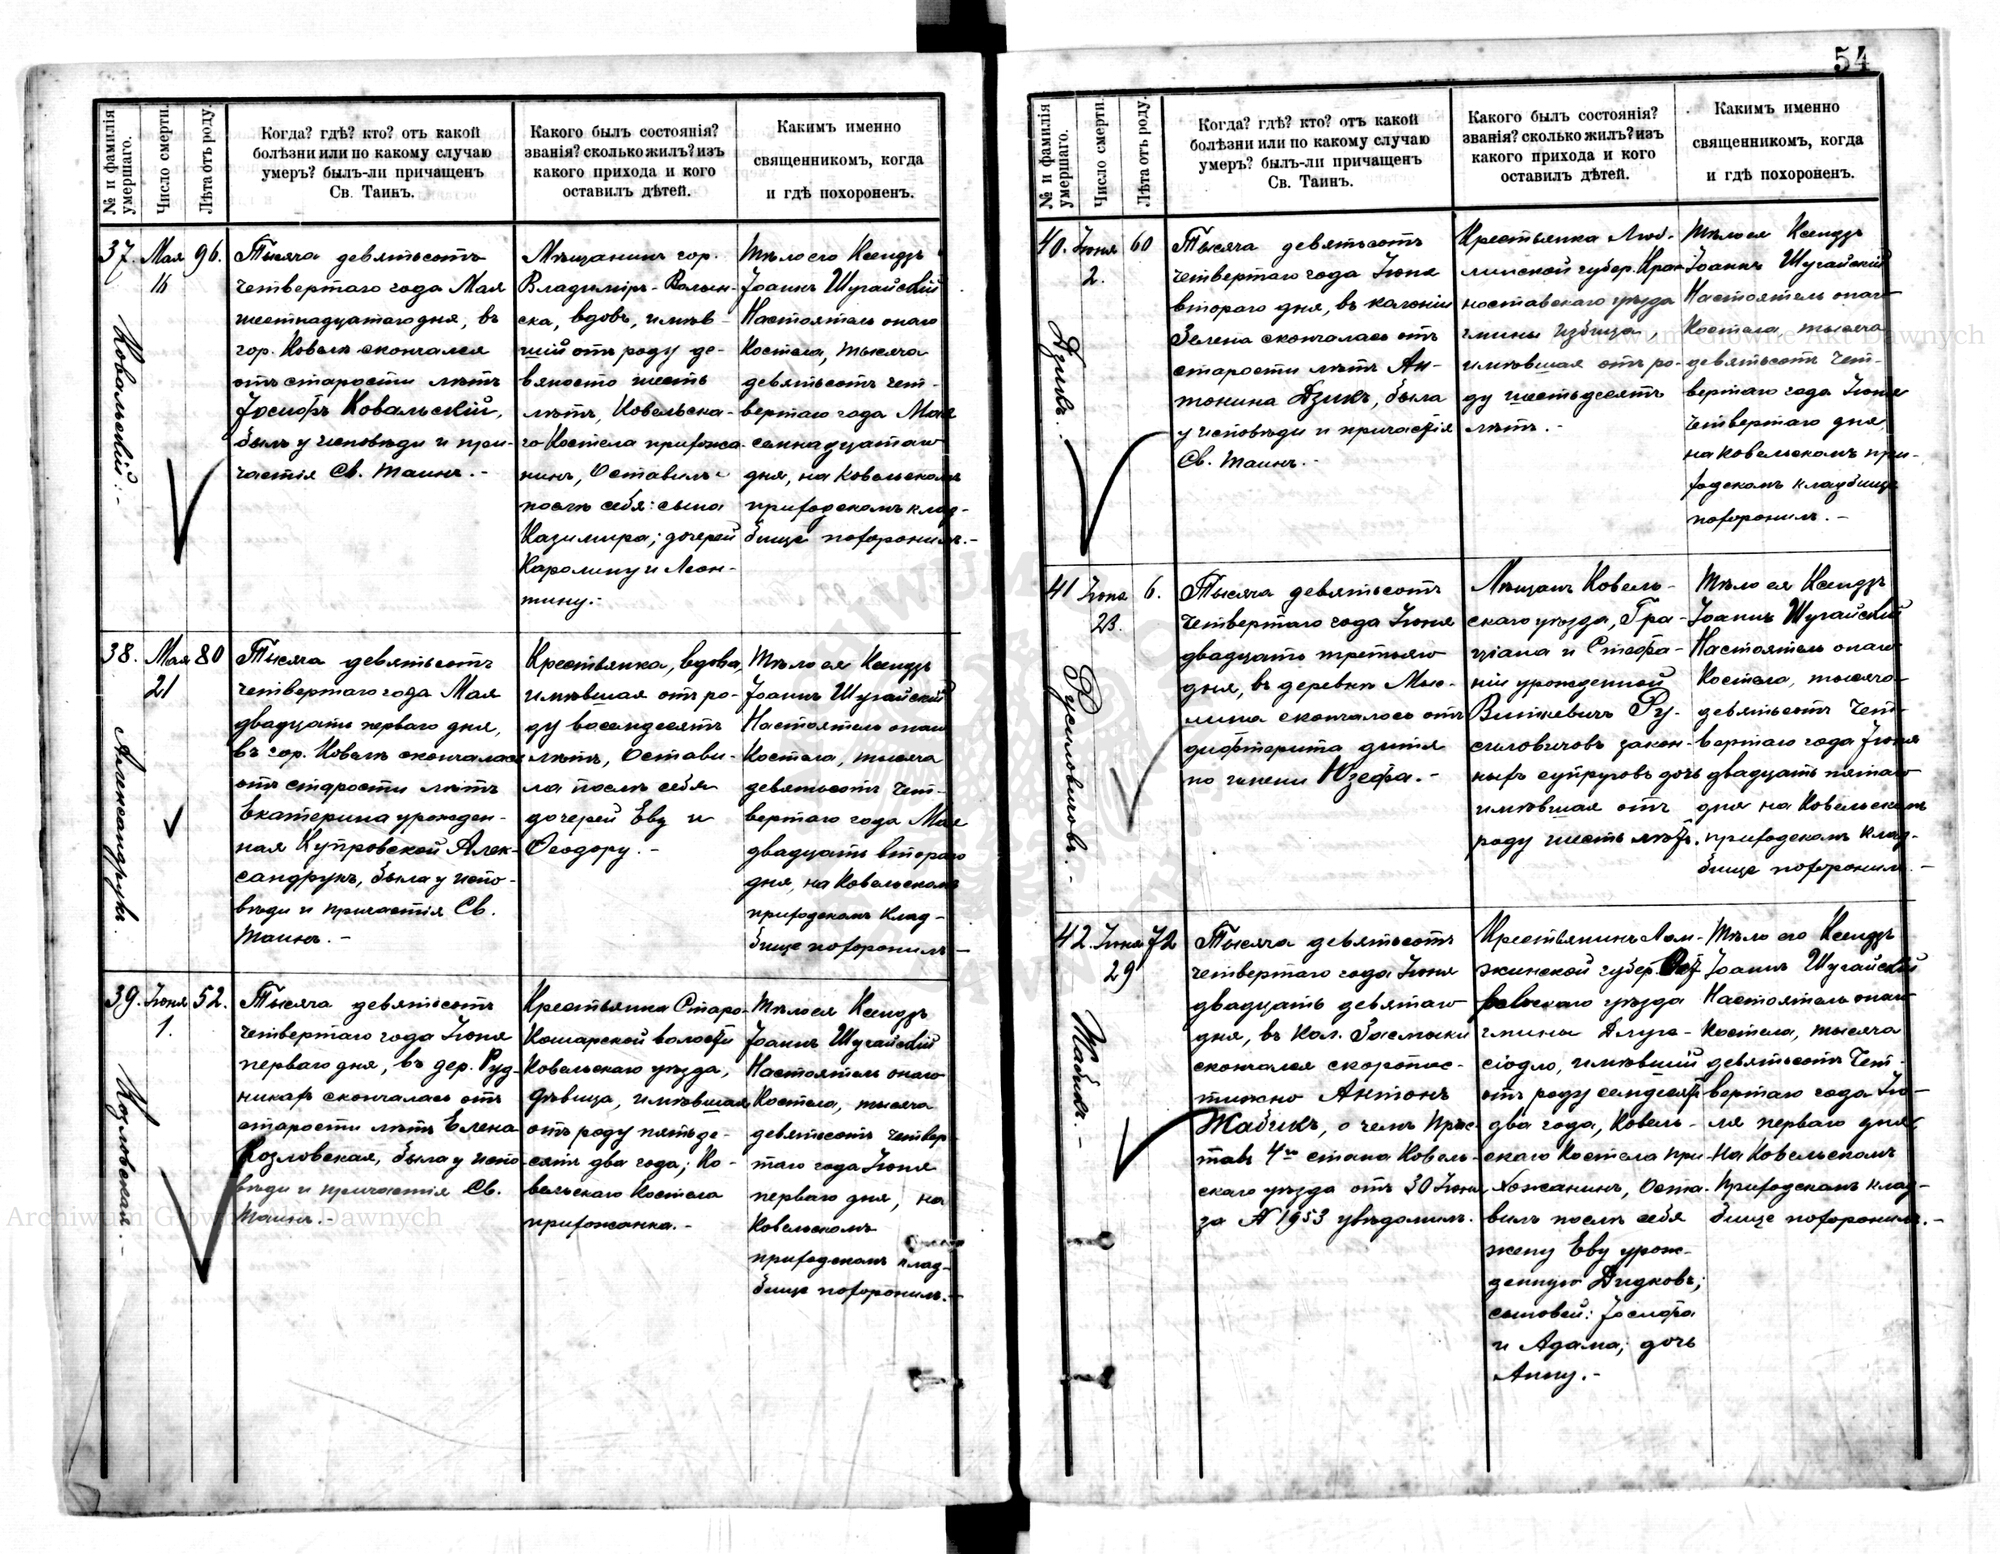 54
№ и фамилія умершаго.
Число смерти.
Лѣта отъ роду.
Когда? гдѣ? кто? отъ какой
болѣзни или по какому случаю
умеръ? былъ-ли причащенъ
Св. Таинъ.
Какого былъ состоянія?
званія? сколько жилъ? изъ
какого прихода и кого
оставилъ дѣтей.
Какимъ именно
священникомъ, когда
и гдѣ похороненъ.
37.
Ковальскій.-
Мая
16
96.
Тысяча девятьсотъ
четвертаго года Мая
шестнадцатаго дня, въ
гор. Ковелѣ скончался
отъ старости лѣтъ
Іосифъ Ковальскій,
былъ у исповѣди и при-
частія Св. Таинъ.-
Мѣщанинъ гор.
Владиміръ-Волын-
ска, вдовъ, имѣв-
шій отъ роду де-
вяносто шесть
лѣтъ, Ковельска-
го Костела прихожа-
нинъ, Оставилъ
послѣ себя: сына
Казимира; дочерей
Каролину и Леон-
тину.-
Тѣло его Ксендзъ
Іоаннъ Шугайскій
Настоятель онаго
Костела, тысяча
девятьсотъ чет-
вертаго года Мая
семнадцатаго
дня, на Ковельскомъ
приходскомъ клад-
бищѣ похоронилъ.-
38.
Александрукъ.
Мая
21
80
Тысяча девятьсотъ
четвертаго года Мая
двадцать перваго дня,
въ гор. Ковелѣ скончалась
отъ старости лѣтъ
Екатерина урожден-
ная Купровской Алек-
сандрукъ, была у испо-
вѣди и причастія Св.
Таинъ.-
Крестьянка, вдова,
имѣвшая отъ ро-
ду восемдесятъ
лѣтъ, Остави-
ла послѣ себя
дочерей Еву и
Ѳеодору.-
Тѣло ея Ксендзъ
Іоаннъ Шугайскій
Настоятель онаго
Костела, тысяча
девятьсотъ чет-
вертаго года Мая
двадцать втораго
дня, на Ковельскомъ
приходскомъ клад-
бищѣ похоронилъ-
39.
Козловская.-
Іюня
1.
52.
Тысяча девятьсотъ
четвертаго года Іюня
перваго дня, въ дер. Руд-
никахъ скончалась отъ
старости лѣтъ Елена
Козловская, была у испо-
вѣди и причастія Св.
Таинъ.-
Крестьянка Старо-
Кошарской волости
Ковельскаго уѣзда,
Дѣвица, имѣвшая
отъ роду пятьде-
сятъ два года; Ко-
вельскаго Костела
прихожанка.-
Тѣло ея Ксендзъ
Іоаннъ Шугайскій
Настоятель онаго
Костела, тысяча
девятьсотъ четвер-
таго года Іюня
перваго дня, на
Ковельскомъ
приходскомъ клад-
бищѣ похоронилъ.-
№ и фамилія умершаго.
Число смерти.
Лѣта отъ роду.
Когда? гдѣ? кто? отъ какой
болѣзни или по какому случаю
умеръ? былъ-ли причащенъ
Св. Таинъ.
Какого былъ состоянія?
званія? сколько жилъ? изъ
какого прихода и кого
оставилъ дѣтей.
Какимъ именно
священникомъ, когда
и гдѣ похороненъ.
40.
Дзикъ.-
Іюня
2.
60
Тысяча девятьсотъ
четвертаго года Іюня
втораго дня, въ колоніи
Зелена скончалась отъ
старости лѣтъ Ан-
тонина Дзикъ, была
у исповѣди и причастія
Св. Таинъ.-
Крестьянка Люб-
линской губер. Крас-
ноставскаго уѣзда
гмины Избица,
имѣвшая отъ ро-
ду шестьдесятъ
лѣтъ.-
Тѣло ея Ксендзъ
Іоаннъ Шугайскій
Настоятель онаго
Костела, тысяча
девятьсотъ чет-
вертаго года Іюня
четвертаго дня,
на Ковельскомъ при-
ходскомъ кладбищѣ
похоронилъ.-
41
Русиловичовъ.-
Іюня
23.
6.
Тысяча девятьсотъ
четвертаго года Іюня
двадцать третьяго
дня, въ деревнѣ
скончалось отъ
дифтерита дитя
по имени Юзефа.-
Мѣщанъ Ковель-
скаго уѣзда, Гра-
ціана и Стефа-
ніи урожденной
Виткевичъ Ру-
силовичовъ закон-
ныхъ супруговъ дочь
имѣвшая отъ
роду шесть лѣтъ.
Тѣло ея Ксендзъ
Іоаннъ Шугайскій
Настоятель онаго
Костела, тысяча
девятьсотъ чет-
вертаго года Іюня
двадцать пятаго
дня на Ковельскомъ
приходскомъ клад-
бищѣ похоронилъ.-
42.
Жабикъ.-
Іюня
29
72
Тысяча девятьсотъ
четвертаго года Іюня
двадцать девятаго
дня, въ кол.
скончался скоропос-
тижно Антонъ
Жабикъ, о чемъ Прис-
тавъ 4го стана Ковель-
скаго уѣзда отъ 30 Іюня
за № 1953 увѣдомилъ.
Крестьянинъ Лом-
жинской губер.
уѣзда
гмины
имѣвшій
отъ роду семдесятъ
два года, Ковель-
скаго Костела при-
хожанинъ, Оста-
вилъ послѣ себя
жену Еву урож-
денную Дидковъ;
сыновей: Іосифа
и Адама; дочь
Анну.-
Тѣло его Ксендзъ
Іоаннъ Шугайскій
Настоятель онаго
Костела, тысяча
девятьсотъ чет-
вертаго года Ію-
ля перваго дня,
на Ковельскомъ
приходскомъ клад-
бищѣ похоронилъ.-
Archiwum Główne Akt Dawnych